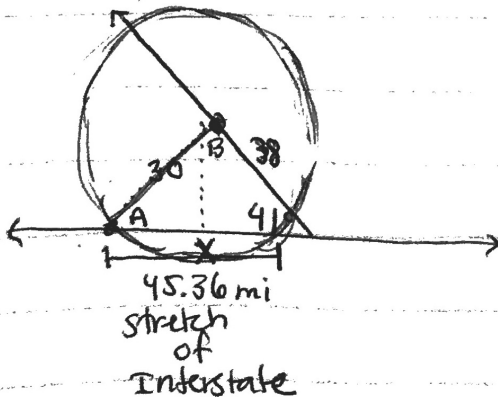 B
30
38
A
41
X
45.36 mi
stretch
of
Interstate